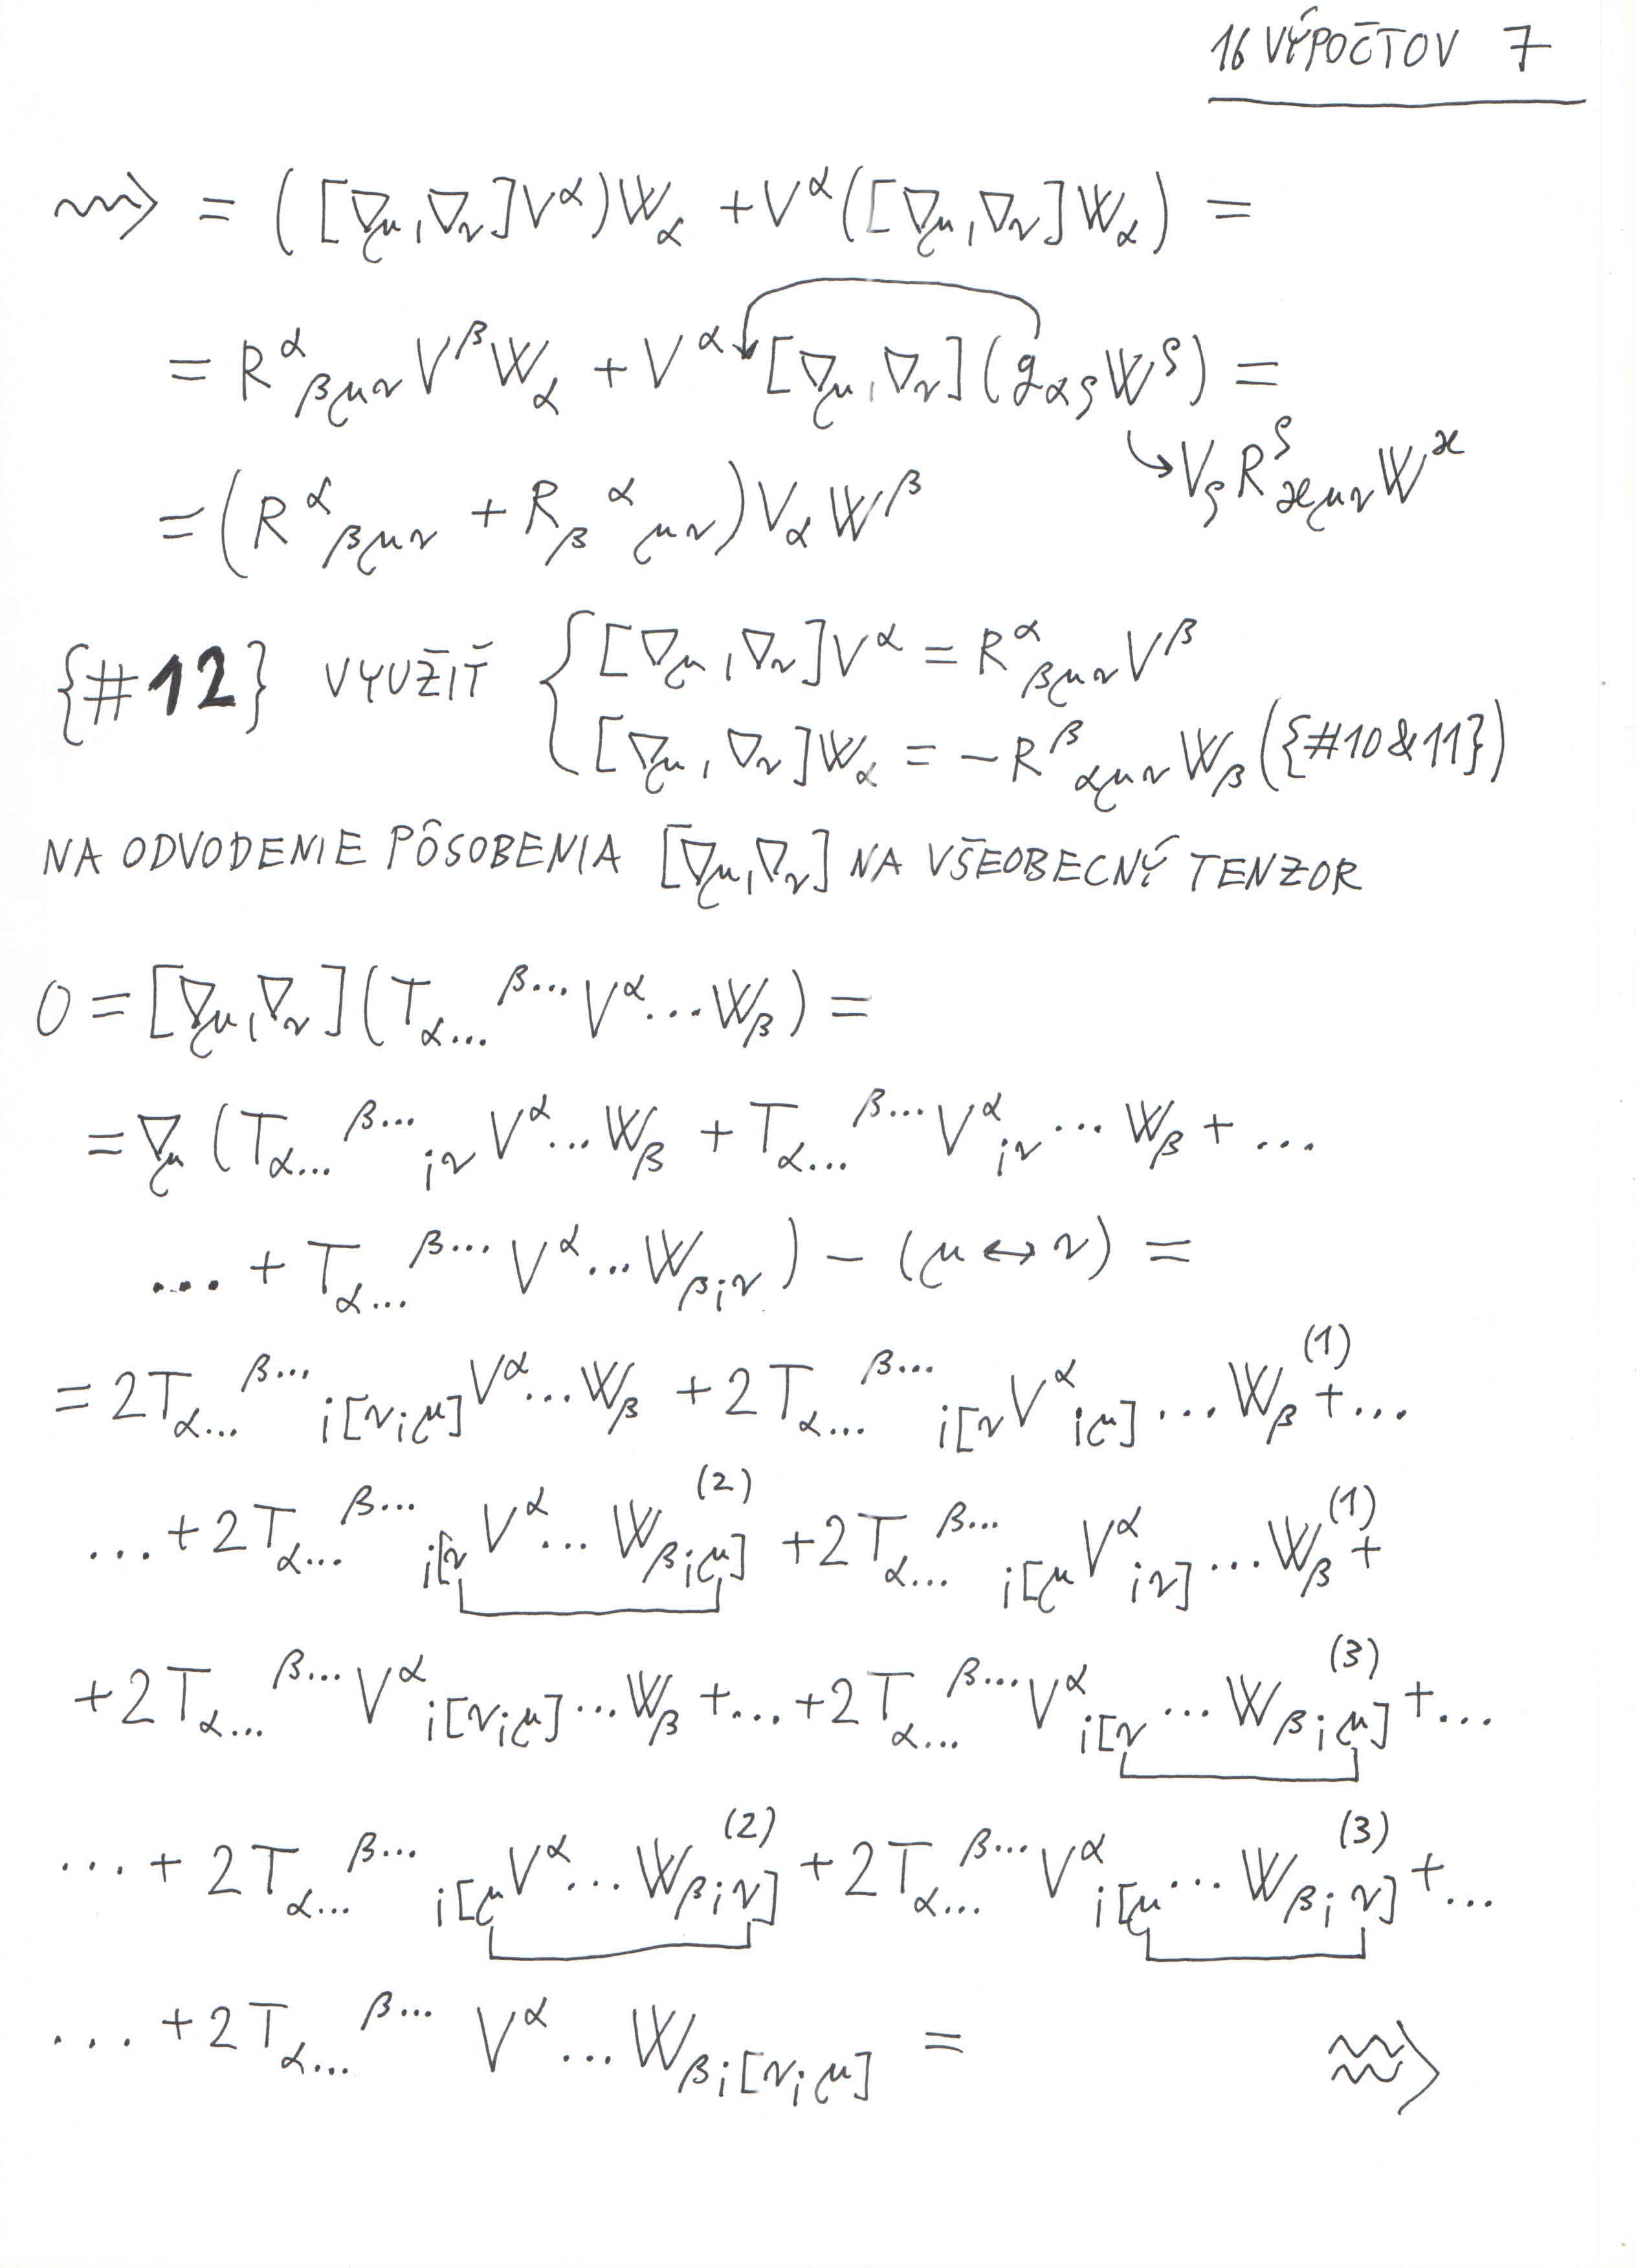 16 VÝPOČTOV 7
⇝ = ([∇μ,∇ν]V^α)W_α + V^α([∇μ,∇ν]W_α) =
= R^α_{βμν} V^β W_α + V^α [∇μ,∇ν](g_{αρ}W^ρ) =
↳ V_ρ R^ρ_{ϰμν} W^ϰ
= (R^α_{βμν} + R_β^α_{μν}) V_α W^β
{#12} VYUŽIŤ { [∇μ,∇ν]V^α = R^α_{βμν} V^β
[∇μ,∇ν]W_α = -R^β_{αμν} W_β ({#10&11})
NA ODVODENIE PÔSOBENIA [∇μ,∇ν] NA VŠEOBECNÝ TENZOR
0 = [∇μ,∇ν](T_{α...}^{β...} V^α...W_β) =
= ∇μ (T_{α...}^{β...}_{;ν} V^α...W_β + T_{α...}^{β...} V^α_{;ν}...W_β + ...
... + T_{α...}^{β...} V^α...W_{β;ν}) - (μ↔ν) =
= 2T_{α...}^{β...}_{;[ν;μ]} V^α...W_β + 2T_{α...}^{β...}_{;[ν} V^α_{;μ]}...W_β^{(1)} + ...
... + 2T_{α...}^{β...}_{;[ν} V^α...W_{β;μ]}^{(2)} + 2T_{α...}^{β...}_{;[μ} V^α_{;ν]}...W_β^{(1)} +
+ 2T_{α...}^{β...} V^α_{;[ν;μ]}...W_β + ... + 2T_{α...}^{β...} V^α_{;[ν}...W_{β;μ]}^{(3)} + ...
... + 2T_{α...}^{β...}_{;[μ} V^α...W_{β;ν]}^{(2)} + 2T_{α...}^{β...} V^α_{;[μ}...W_{β;ν]}^{(3)} + ...
... + 2T_{α...}^{β...} V^α...W_{β;[ν;μ]} = ⇝